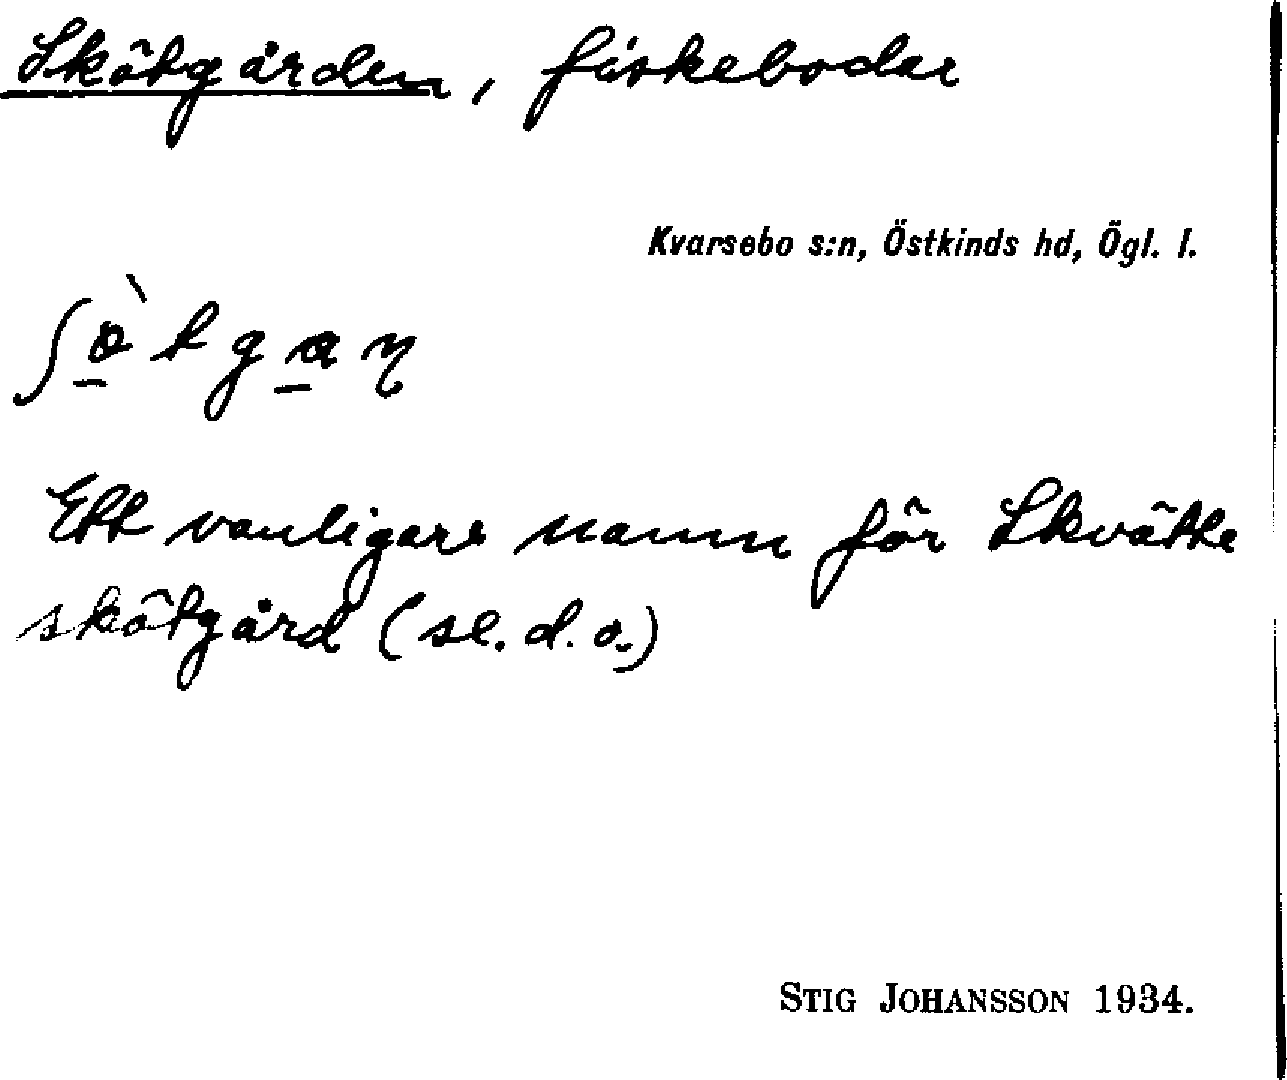 Skötgården, fiskebodar
Kvarsebo s:n, Östkinds hd, Ögl. l.
Ett vanligare namn för Skvätte
skötgård (se. d. o.)
STIG JOHANSSON 1934.